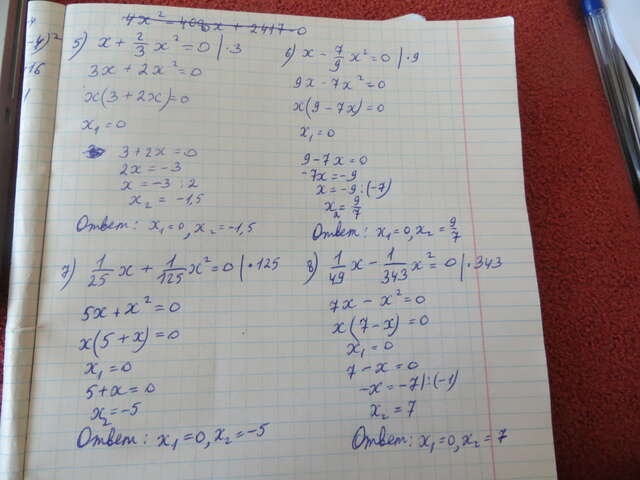 4x² = 408x + 2417 = 0
-4)²
-16
5) x + 2/3 x² = 0 | · 3
3x + 2x² = 0
x(3 + 2x) = 0
x₁ = 0
3 + 2x = 0
2x = -3
x = -3 : 2
x₂ = -1,5
Ответ: x₁ = 0, x₂ = -1,5
6) x - 7/9 x² = 0 | · 9
9x - 7x² = 0
x(9 - 7x) = 0
x₁ = 0
9 - 7x = 0
-7x = -9
x = -9 : (-7)
x₂ = 9/7
Ответ: x₁ = 0, x₂ = 9/7
7) 1/25 x + 1/125 x² = 0 | · 125
5x + x² = 0
x(5 + x) = 0
x₁ = 0
5 + x = 0
x₂ = -5
Ответ: x₁ = 0, x₂ = -5
8) 1/49 x - 1/343 x² = 0 | · 343
7x - x² = 0
x(7 - x) = 0
x₁ = 0
7 - x = 0
-x = -7 | : (-1)
x₂ = 7
Ответ: x₁ = 0, x₂ = 7